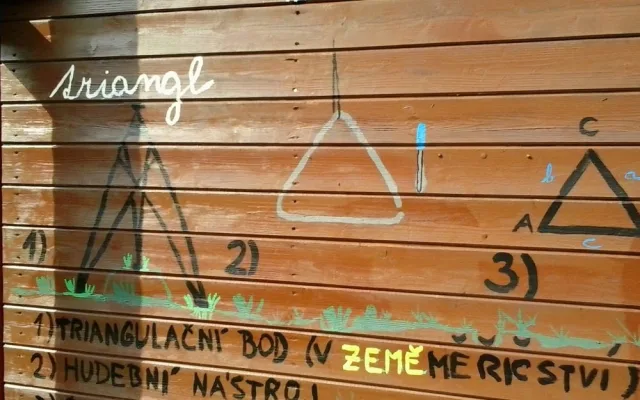 triangl
C
b a
A
c
1) 2) 3)
1) TRIANGULAČNÍ BOD (V ZEMĚMĚŘIČSTVÍ)
2) HUDEBNÍ NÁSTROJ